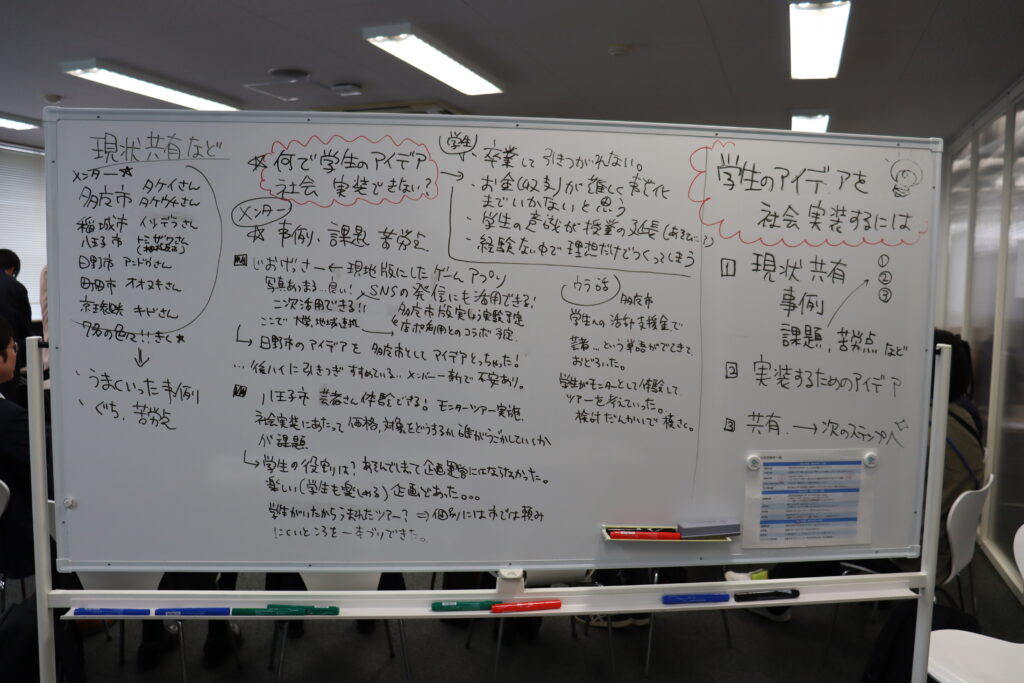 現状共有など
メンター★
多摩市 タケイさん
タケウチさん
稲城市 イソデラさん
八王子市 トミザワさん
日野市 アンドウさん
町田市 オオヌキさん
京王線 キビさん
7名の色々!!きく★
↓
・うまくいった事例
・ぐち、苦労点
☆何で学生のアイデア
社会実装できない? →
メンター
☆事例、課題 苦労点
学生
・卒業して引きつがれない。
・お金(収支)が難しく
までいかないと思う
・学生の意識が授業の延長
・経験ない中で理想だけでつくってしまう
じおげっさー ← 現地版にしたゲームアプリ
写真あつまる…良い! SNSの発信にも活用できる!
二次活用できる!! 多摩市版実しょう実験予定
ここで 大学、地域連携 とのコラボ予定
↳日野市のアイデアを 多摩市としてアイデアとっちゃった!
…後ハイに引きつぎすすめている…メンバー一新で不安あり。
八王子市 芸者さん体験できる! モニターツアー実施
社会実装にあたって 価格、対象をどうするか
が課題
↳学生の役割りは?
楽しい(学生も楽しめる)企画であった。。。
学生がいたからうまれたツアー? ⇒ 個別には市では頼み
にくいところを一本づりできた。
ウラ話
多摩市
学生への活動支援金で
芸者…という単語がでてきて
おどろいた。
学生がモニターとして体験して
ツアーを考えていった。
検討だんかいで
学生のアイデアを
社会実装するには
1 現状共有 ①
事例 ②
課題、苦労点 など ③
2 実装するためのアイデア
3 共有 → 次のステップへ